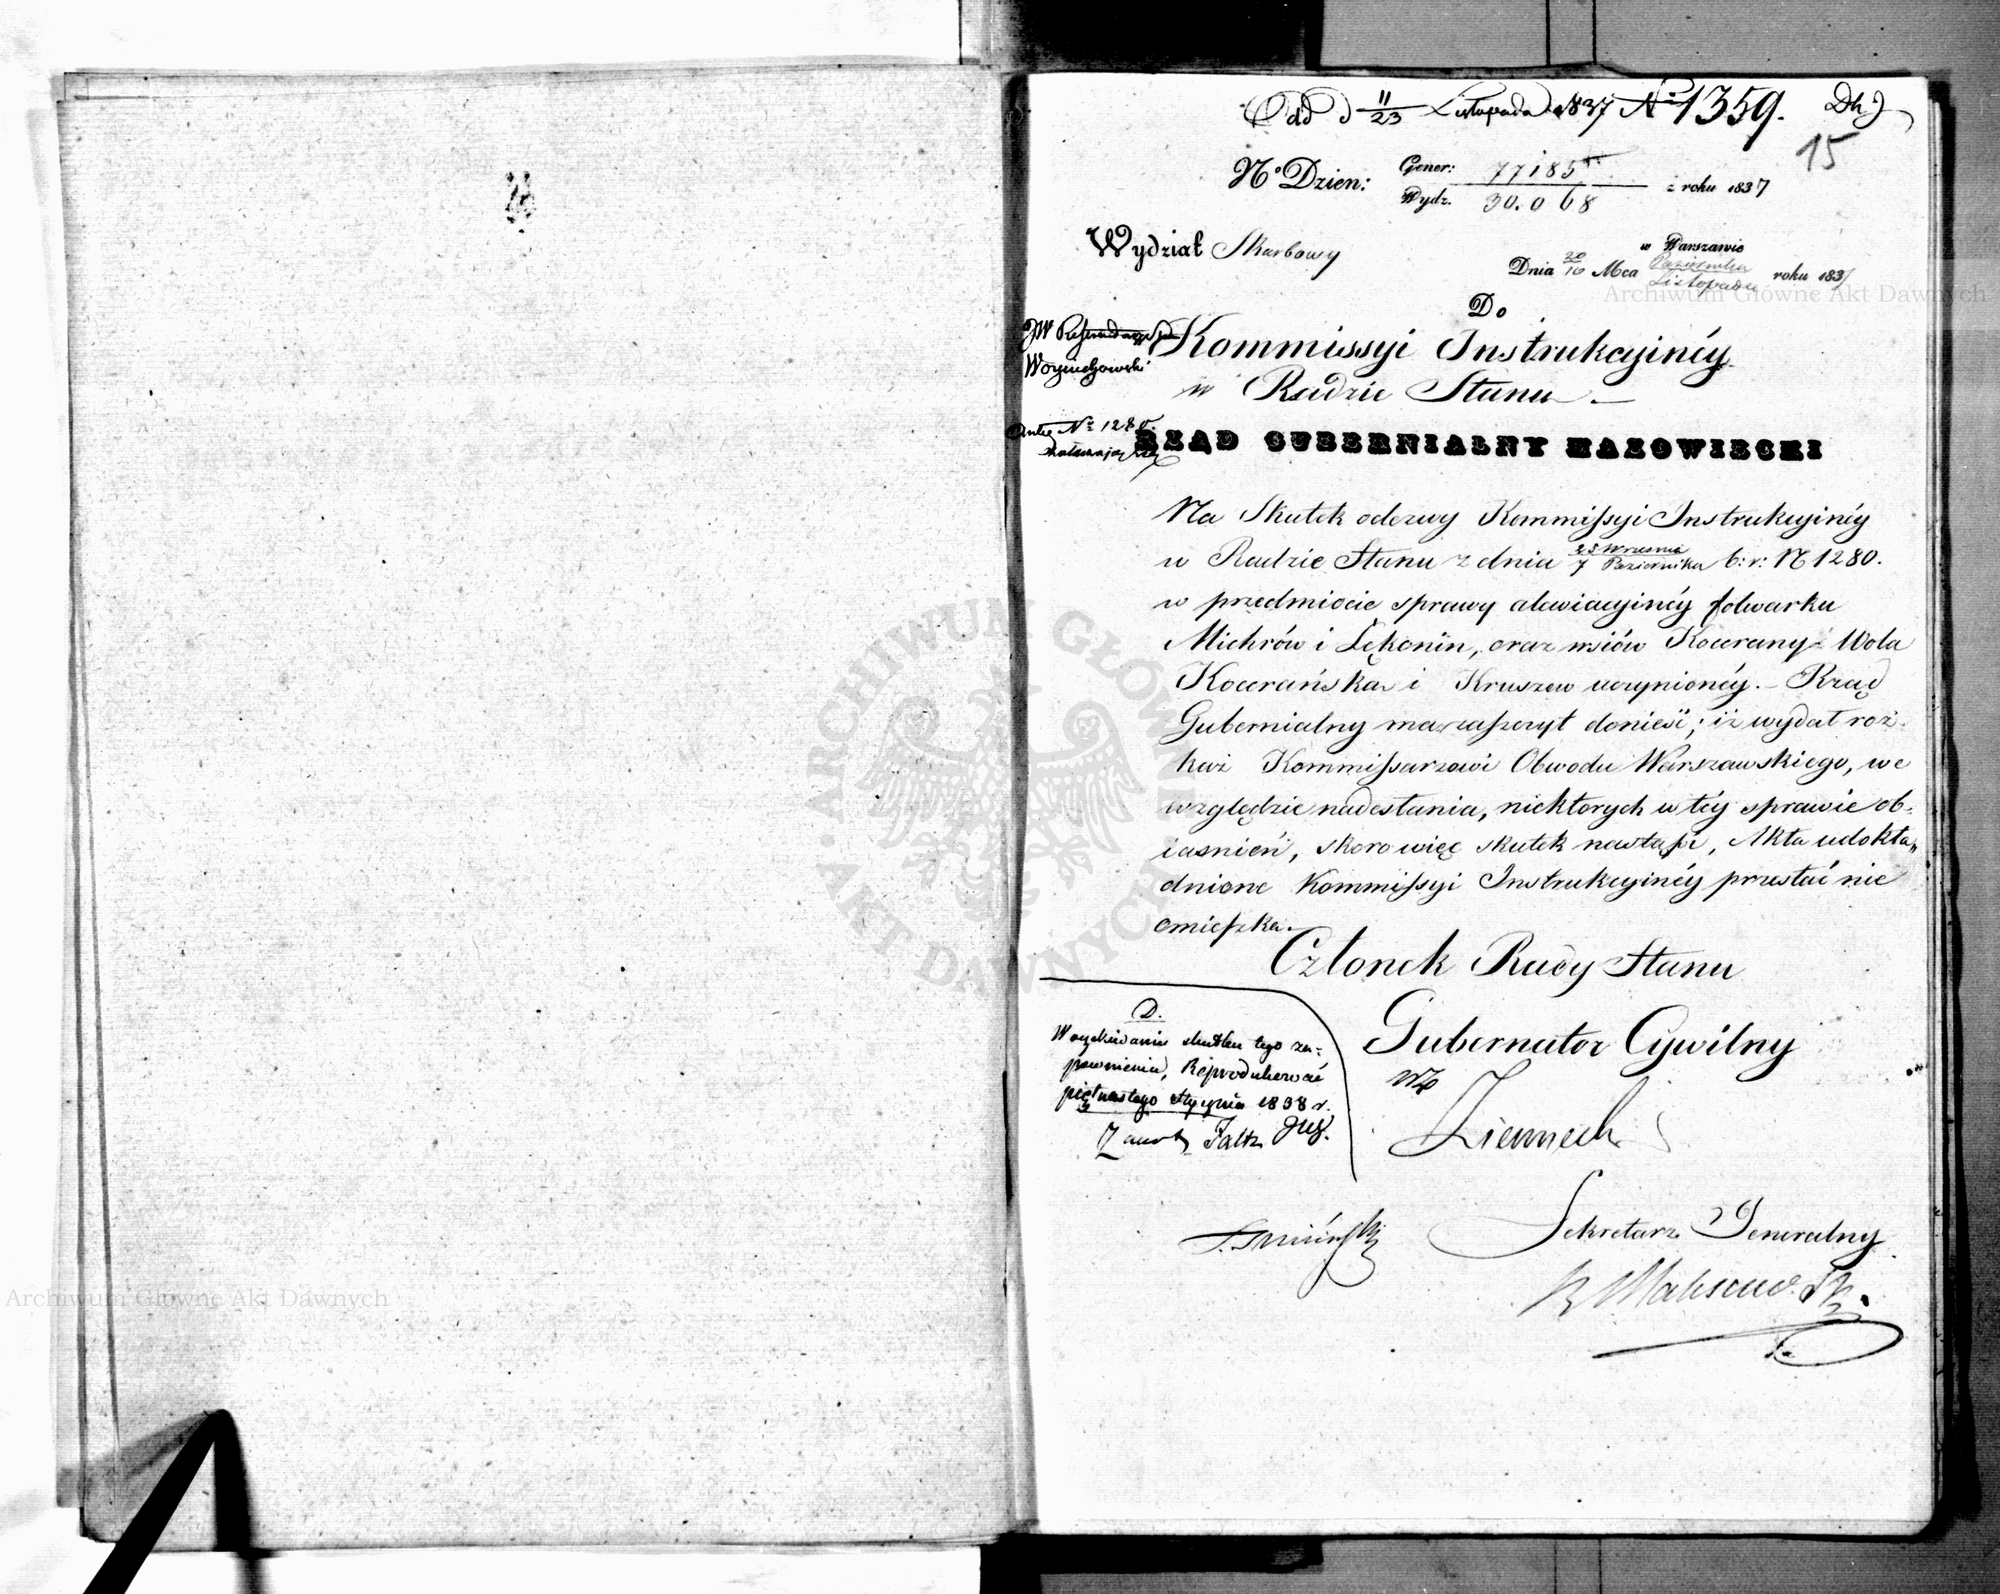 Odd d 11/23 Listopada 1837 No 1359.
15
No Dzien: Gener: 77185 z roku 1837
Wydz. 30.068
Wydział Skarbowy
w Warszawie
Dnia Mca Października Listopada roku 1837
Do
JW Referendarza
Woyciechowski
Kommissyi Instrukcyinéy
w Radzie Stanu
No 1280.
RZĄD GUBERNIALNY MAZOWIECKI
Na Skutek odezwy Kommissyi Instrukcyinéy
w Radzie Stanu z dnia 25 Września / 7 Pazdziernika b: r: N 1280.
w przedmiocie sprawy folwarku
Michrów i Lękonin, oraz wsiów Kocerany Wola
Kocerańska i Kruszew uczynionéy. – Rząd
Gubernialny ma zaszczyt donieść; iż wydał roz-
kaz Kommissarzowi Obwodu Warszawskiego, we
względzie nadesłania, niektorych w téy sprawie ob-
iasnień, skoro więc skutek nastąpi, Akta udokła„
dnione Kommissyi Instrukcyinéy przesłać nie
omieszka.
Członek Rady Stanu
Gubernator Cywilny
wz
D.
W oczekiwaniu skutku tego za-
pewnienia, Reprodukować
piętnastego Stycznia 1838 r.
Sekretarz Generalny
ARCHIWUM GŁÓWNE AKT DAWNYCH
Archiwum Główne Akt Dawnych
Archiwum Główne Akt Dawnych